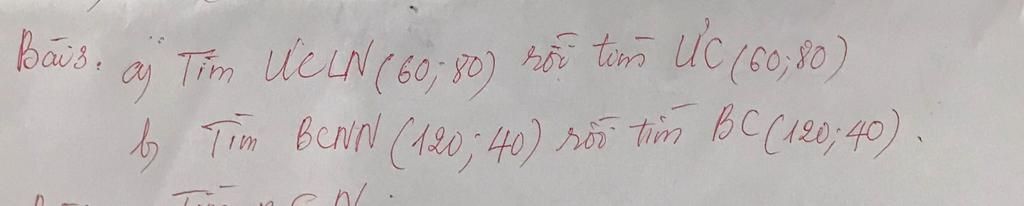 Bài 3. a) Tìm ƯCLN (60; 80) rồi tìm ƯC (60; 80)
b) Tìm BCNN (120; 40) rồi tìm BC (120; 40).